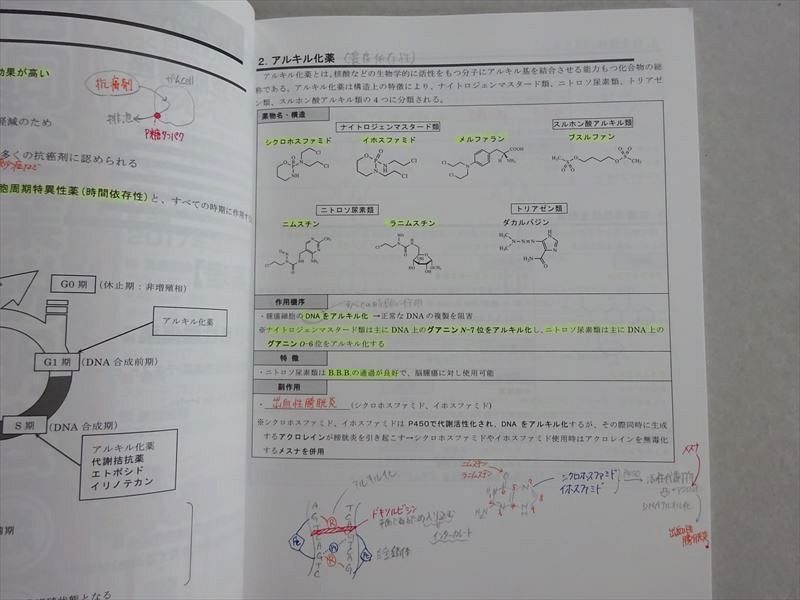 効果が高い
抗癌剤
がんcell
排泄
P糖タンパク
軽減のため
多くの抗癌剤に認められる
胞周期特異性薬(時間依存性)と、すべての時期に作用す
G0期 (休止期:非増殖相)
アルキル化薬
G1期 (DNA合成前期)
S期 (DNA合成期)
アルキル化薬
代謝拮抗薬
エトポシド
イリノテカン
2. アルキル化薬 (濃度依存性)
アルキル化薬とは、核酸などの生物学的に活性をもつ分子にアルキル基を結合させる能力をもつ化合物の総
称である。アルキル化薬は構造上の特徴により、ナイトロジェンマスタード類、ニトロソ尿素類、トリアゼ
ン類、スルホン酸アルキル類の4つに分類される。
薬物名・構造
ナイトロジェンマスタード類
スルホン酸アルキル類
シクロホスファミド
イホスファミド
メルファラン
ブスルファン
ニトロソ尿素類
トリアゼン類
ニムスチン
ラニムスチン
ダカルバジン
作用機序
・腫瘍細胞のDNAをアルキル化 →正常なDNAの複製を阻害
※ナイトロジェンマスタード類は主にDNA上のグアニンN-7位をアルキル化し、ニトロソ尿素類は主にDNA上の
グアニンO-6位をアルキル化する
特徴
・ニトロソ尿素類はB.B.B.の通過が良好で、脳腫瘍に対し使用可能
副作用
・出血性膀胱炎 (シクロホスファミド、イホスファミド)
※シクロホスファミド、イホスファミドはP450で代謝活性化され、DNAをアルキル化するが、その際同時に生成
するアクロレインが膀胱炎を引き起こす→シクロホスファミドやイホスファミド使用時はアクロレインを無毒化
するメスナを併用
アルキル化
ドキソルビシン
インターカレート
ニムスチン
ラニムスチン
シクロホスファミド
イホスファミド
P450
メスナ
DNAアルキル化
出血性
膀胱炎